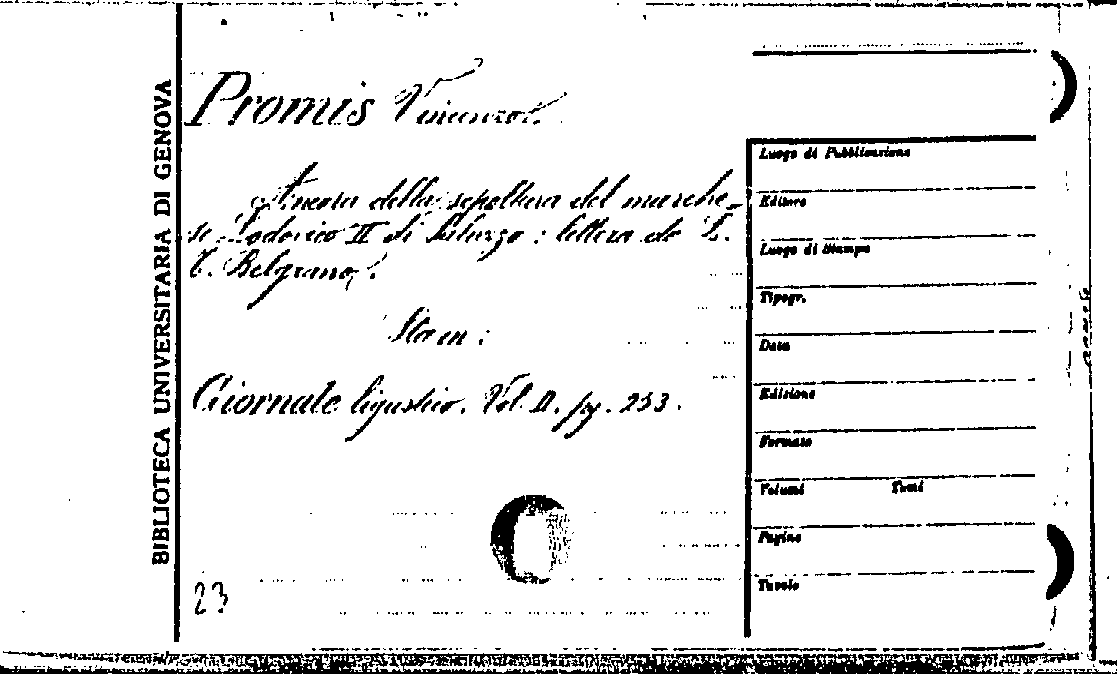 BIBLIOTECA UNIVERSITARIA DI GENOVA
Promis Vincenzo.
Ancora della sepoltura del marche-
se Lodovico II di Saluzzo: lettera da L.
T. Belgrano.
Sta in:
Giornale ligustico. Vol. II. pg. 253.
23
Luogo di Pubblicazione
Editore
Luogo di Stampa
Tipogr.
Data
Edizione
Formato
Volumi Tomi
Pagine
Tavole